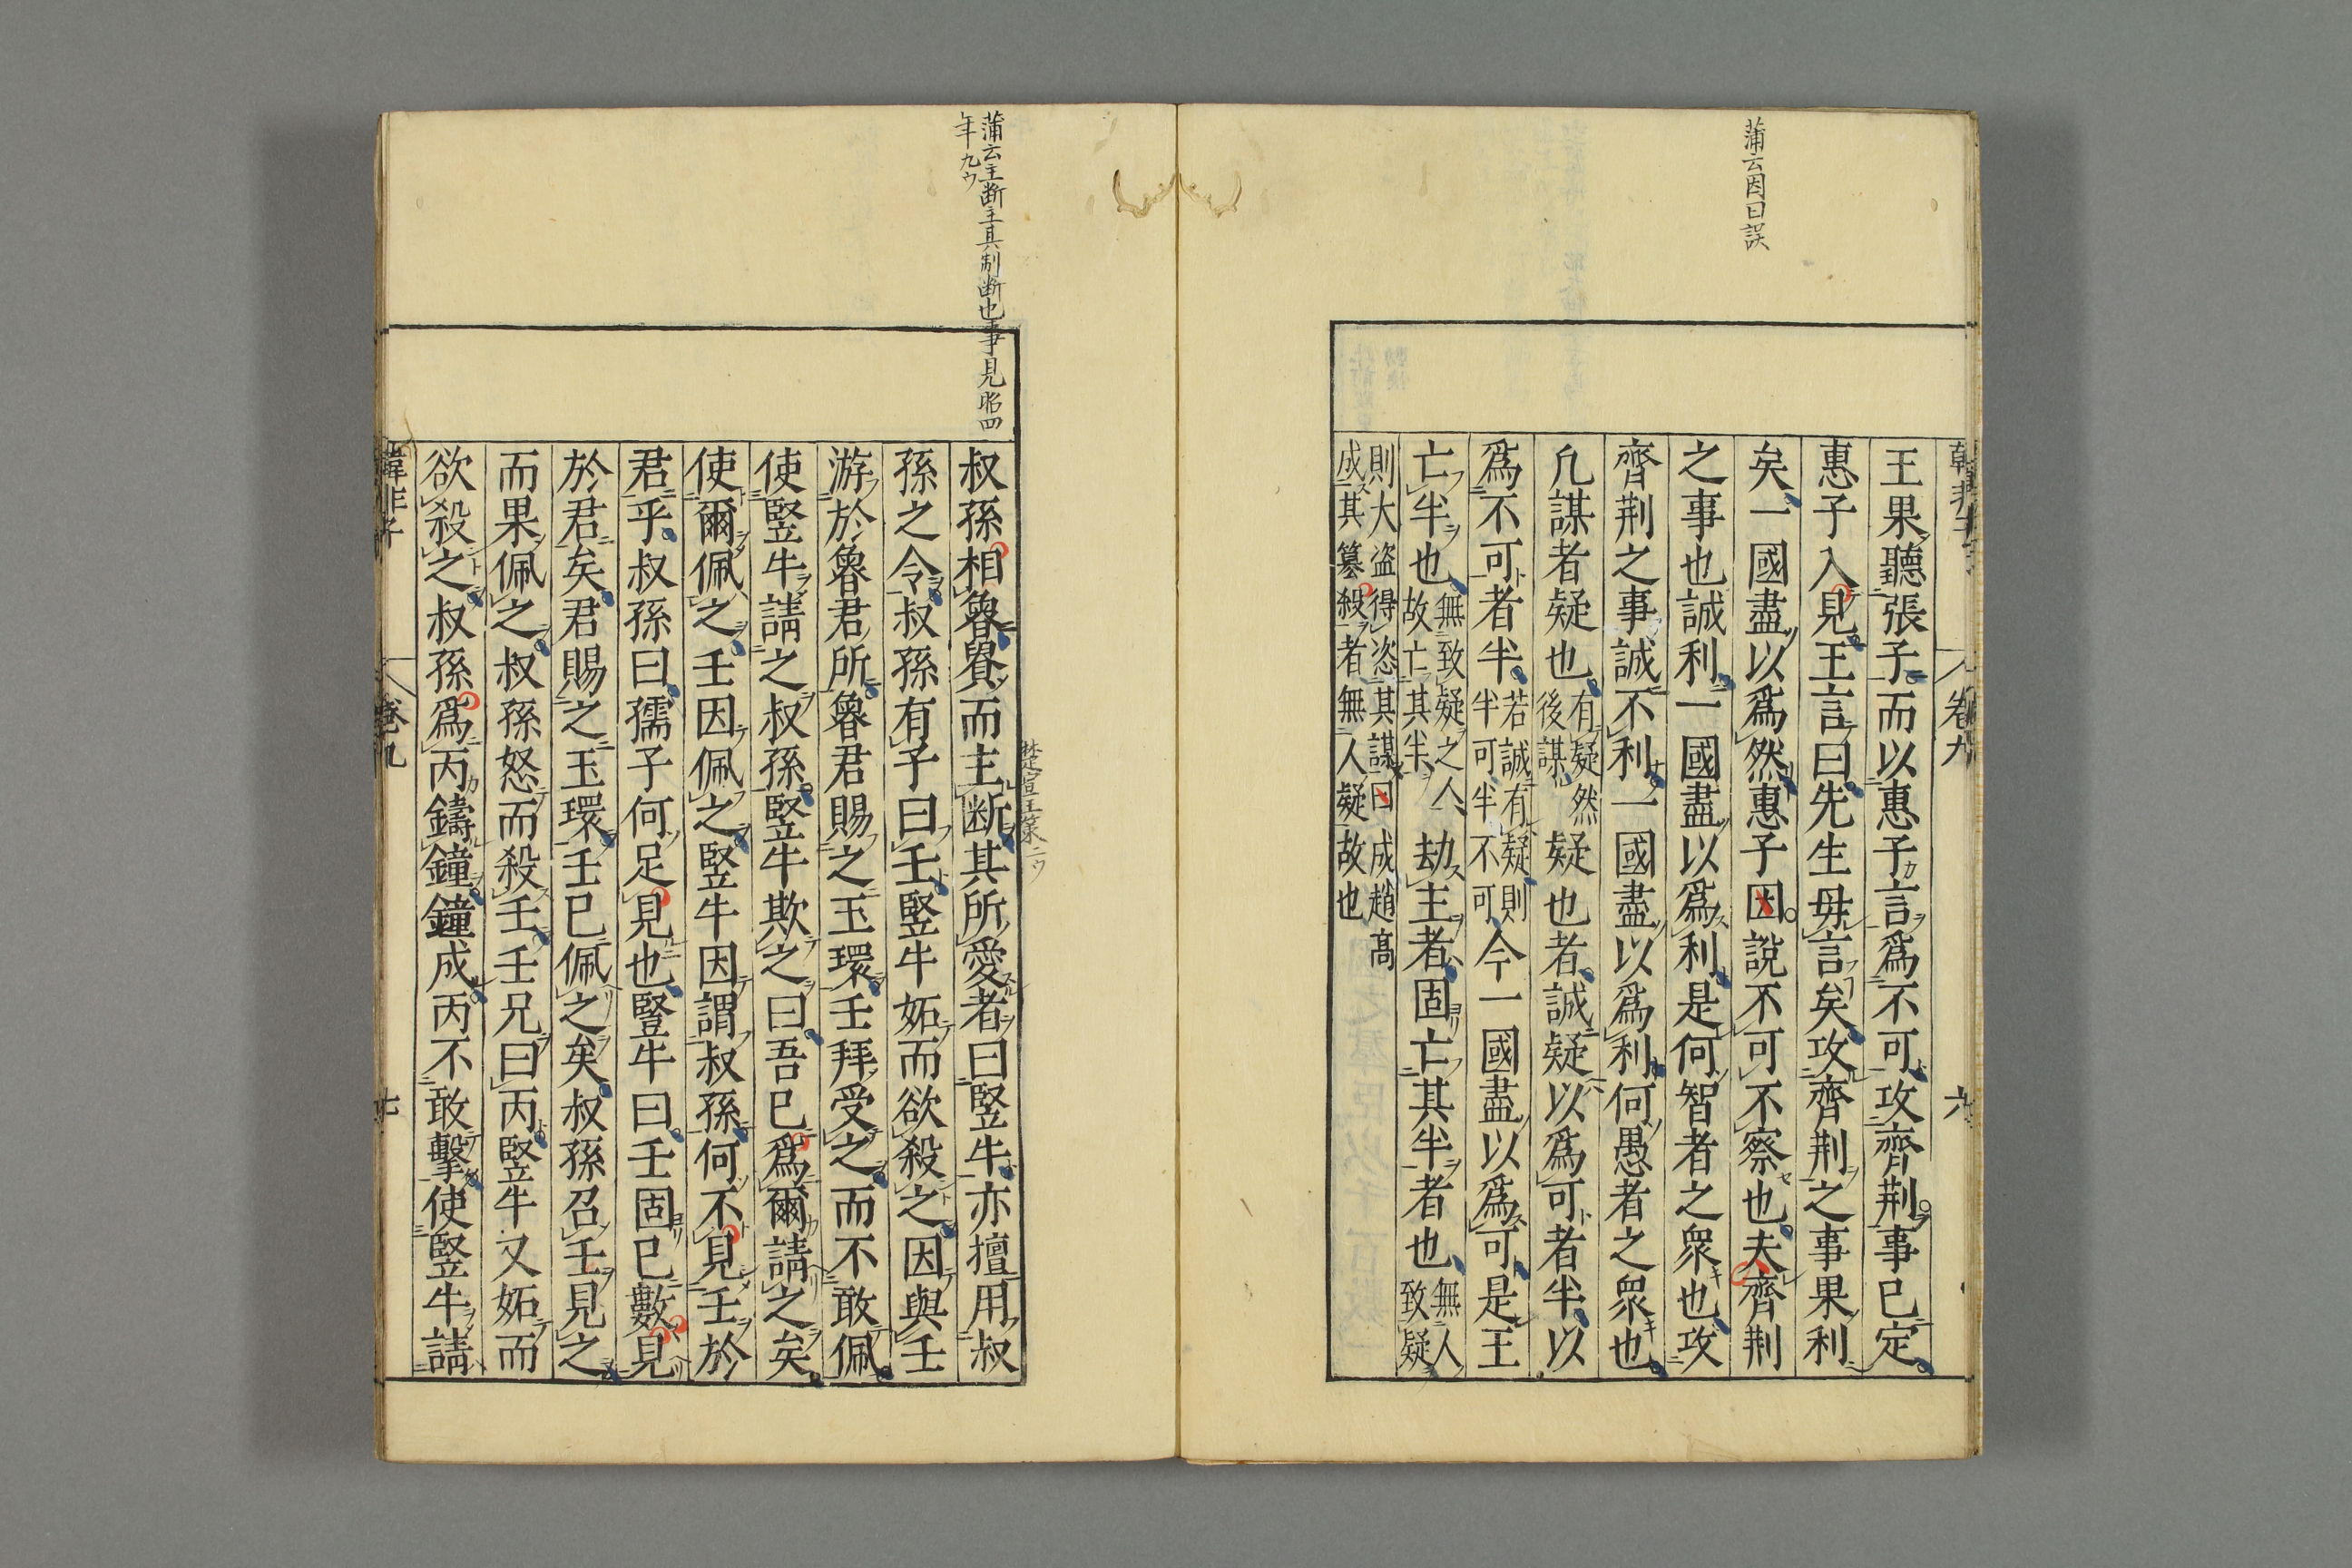 蒲云因曰誤
王果聽張子而以惠子言爲不可攻齊荆事已定
惠子入見王言曰先生毋言矣攻齊荆之事果利
矣一國盡以爲然惠子因說不可不察也夫齊荆
之事也誠利一國盡以爲利是何智者之衆也攻
齊荆之事誠不利一國盡以爲利何愚者之衆也
凡謀者疑也有疑然後謀疑也者誠疑以爲可者半以
爲不可者半若誠有疑則半可半不可今一國盡以爲可是王
亡半也無致疑之人故亡其半劫主者固亡其半者也無人致疑
則大盗得恣其謀曰成趙髙
成其簒殺者無人疑故也
卷九
六
蒲云主断主其制断也事見昭四
年九ウ
叔孫相魯貴而主断其所愛者曰竪牛亦擅用叔
孫之令叔孫有子曰壬竪牛妬而欲殺之因與壬
游於魯君所魯君賜之玉環壬拜受之而不敢佩
使竪牛請之叔孫竪牛欺之曰吾已爲爾請之矣
使爾佩之壬因佩之竪牛因謂叔孫何不見壬於
君乎叔孫曰孺子何足見也竪牛曰壬固已數見
於君矣君賜之玉環壬已佩之矣叔孫召壬見之
而果佩之叔孫怒而殺壬壬兄曰丙竪牛又妬而
欲殺之叔孫爲丙鑄鐘鐘成丙不敢擊使竪牛請
韓非子
卷九
七